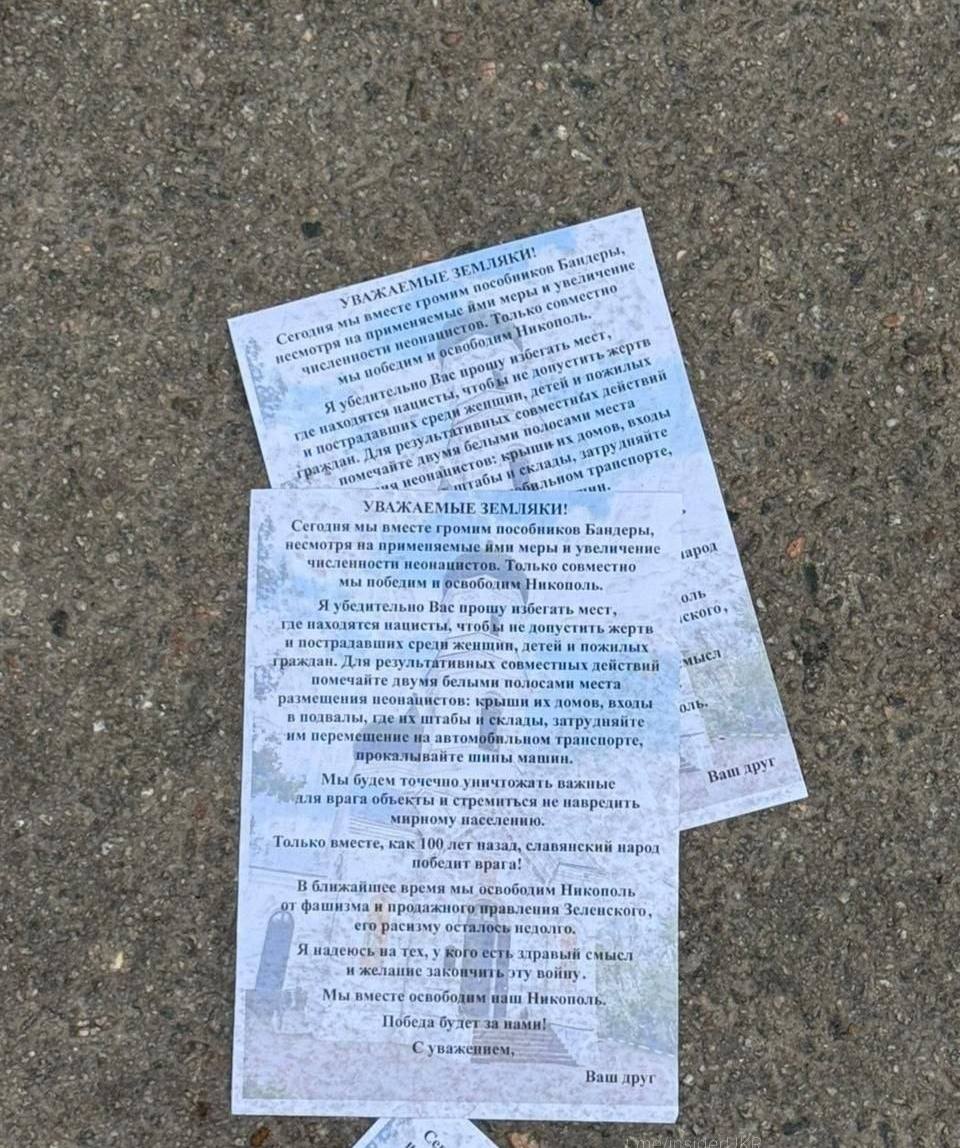 УВАЖАЕМЫЕ ЗЕМЛЯКИ!
Сегодня мы вместе громим пособников Бандеры,
несмотря на применяемые йми меры и увеличение
численности неонацистов. Только совместно
мы победим и освободим Никополь.
Я убедительно Вас прошу избегать мест,
где находятся нацисты, чтобы не допустить жертв
и пострадавших среди женщин, детей и пожилых
граждан. Для результативных совместных действий
помечайте двумя белыми полосами места
ия неонацистов: крыши их домов, входы
штабы и склады, затрудняйте
обильном транспорте,
шин.
народ
оль
ского,
смысл
оль.
Ваш друг
УВАЖАЕМЫЕ ЗЕМЛЯКИ!
Сегодня мы вместе громим пособников Бандеры,
несмотря на применяемые йми меры и увеличение
численности неонацистов. Только совместно
мы победим и освободим Никополь.
Я убедительно Вас прошу избегать мест,
где находятся нацисты, чтобы не допустить жертв
и пострадавших среди женщин, детей и пожилых
граждан. Для результативных совместных действий
помечайте двумя белыми полосами места
размещения неонацистов: крыши их домов, входы
в подвалы, где их штабы и склады, затрудняйте
им перемещение на автомобильном транспорте,
прокалывайте шины машин.
Мы будем точечно уничтожать важные
для врага объекты и стремиться не навредить
мирному населению.
Только вместе, как 100 лет назад, славянский народ
победит врага!
В ближайшее время мы освободим Никополь
от фашизма и продажного правления Зеленского,
его расизму осталось недолго.
Я надеюсь на тех, у кого есть здравый смысл
и желание закончить эту войну.
Мы вместе освободим наш Никополь.
Победа будет за нами!
С уважением,
Ваш друг
Се
t.me/insiderUKR